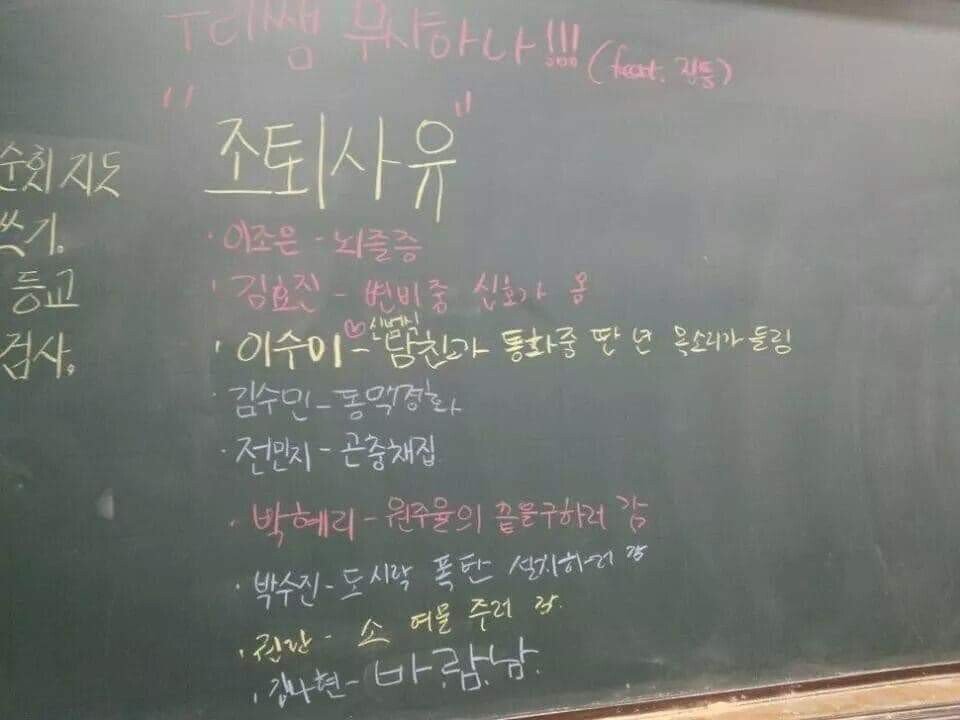 우리쌤 무사하나!!! (feat. 진통)
"조퇴사유"
순회지도
쓰기.
등교
검사.
· 이조은 - 뇌졸증
· 김효진 - 변비중 신호가 옴
· 이수이 ♡ - 신병식 남친과 통화중 딴 년 목소리가 들림
· 김수민 - 동맥경화
· 전민지 - 곤충채집
· 박혜리 - 원주율의 끝을구하러 감
· 박수진 - 도시락 폭탄 설치하러 감
· 권란 - 소 여물 주러 감.
· 김나현 - 바.람.남.